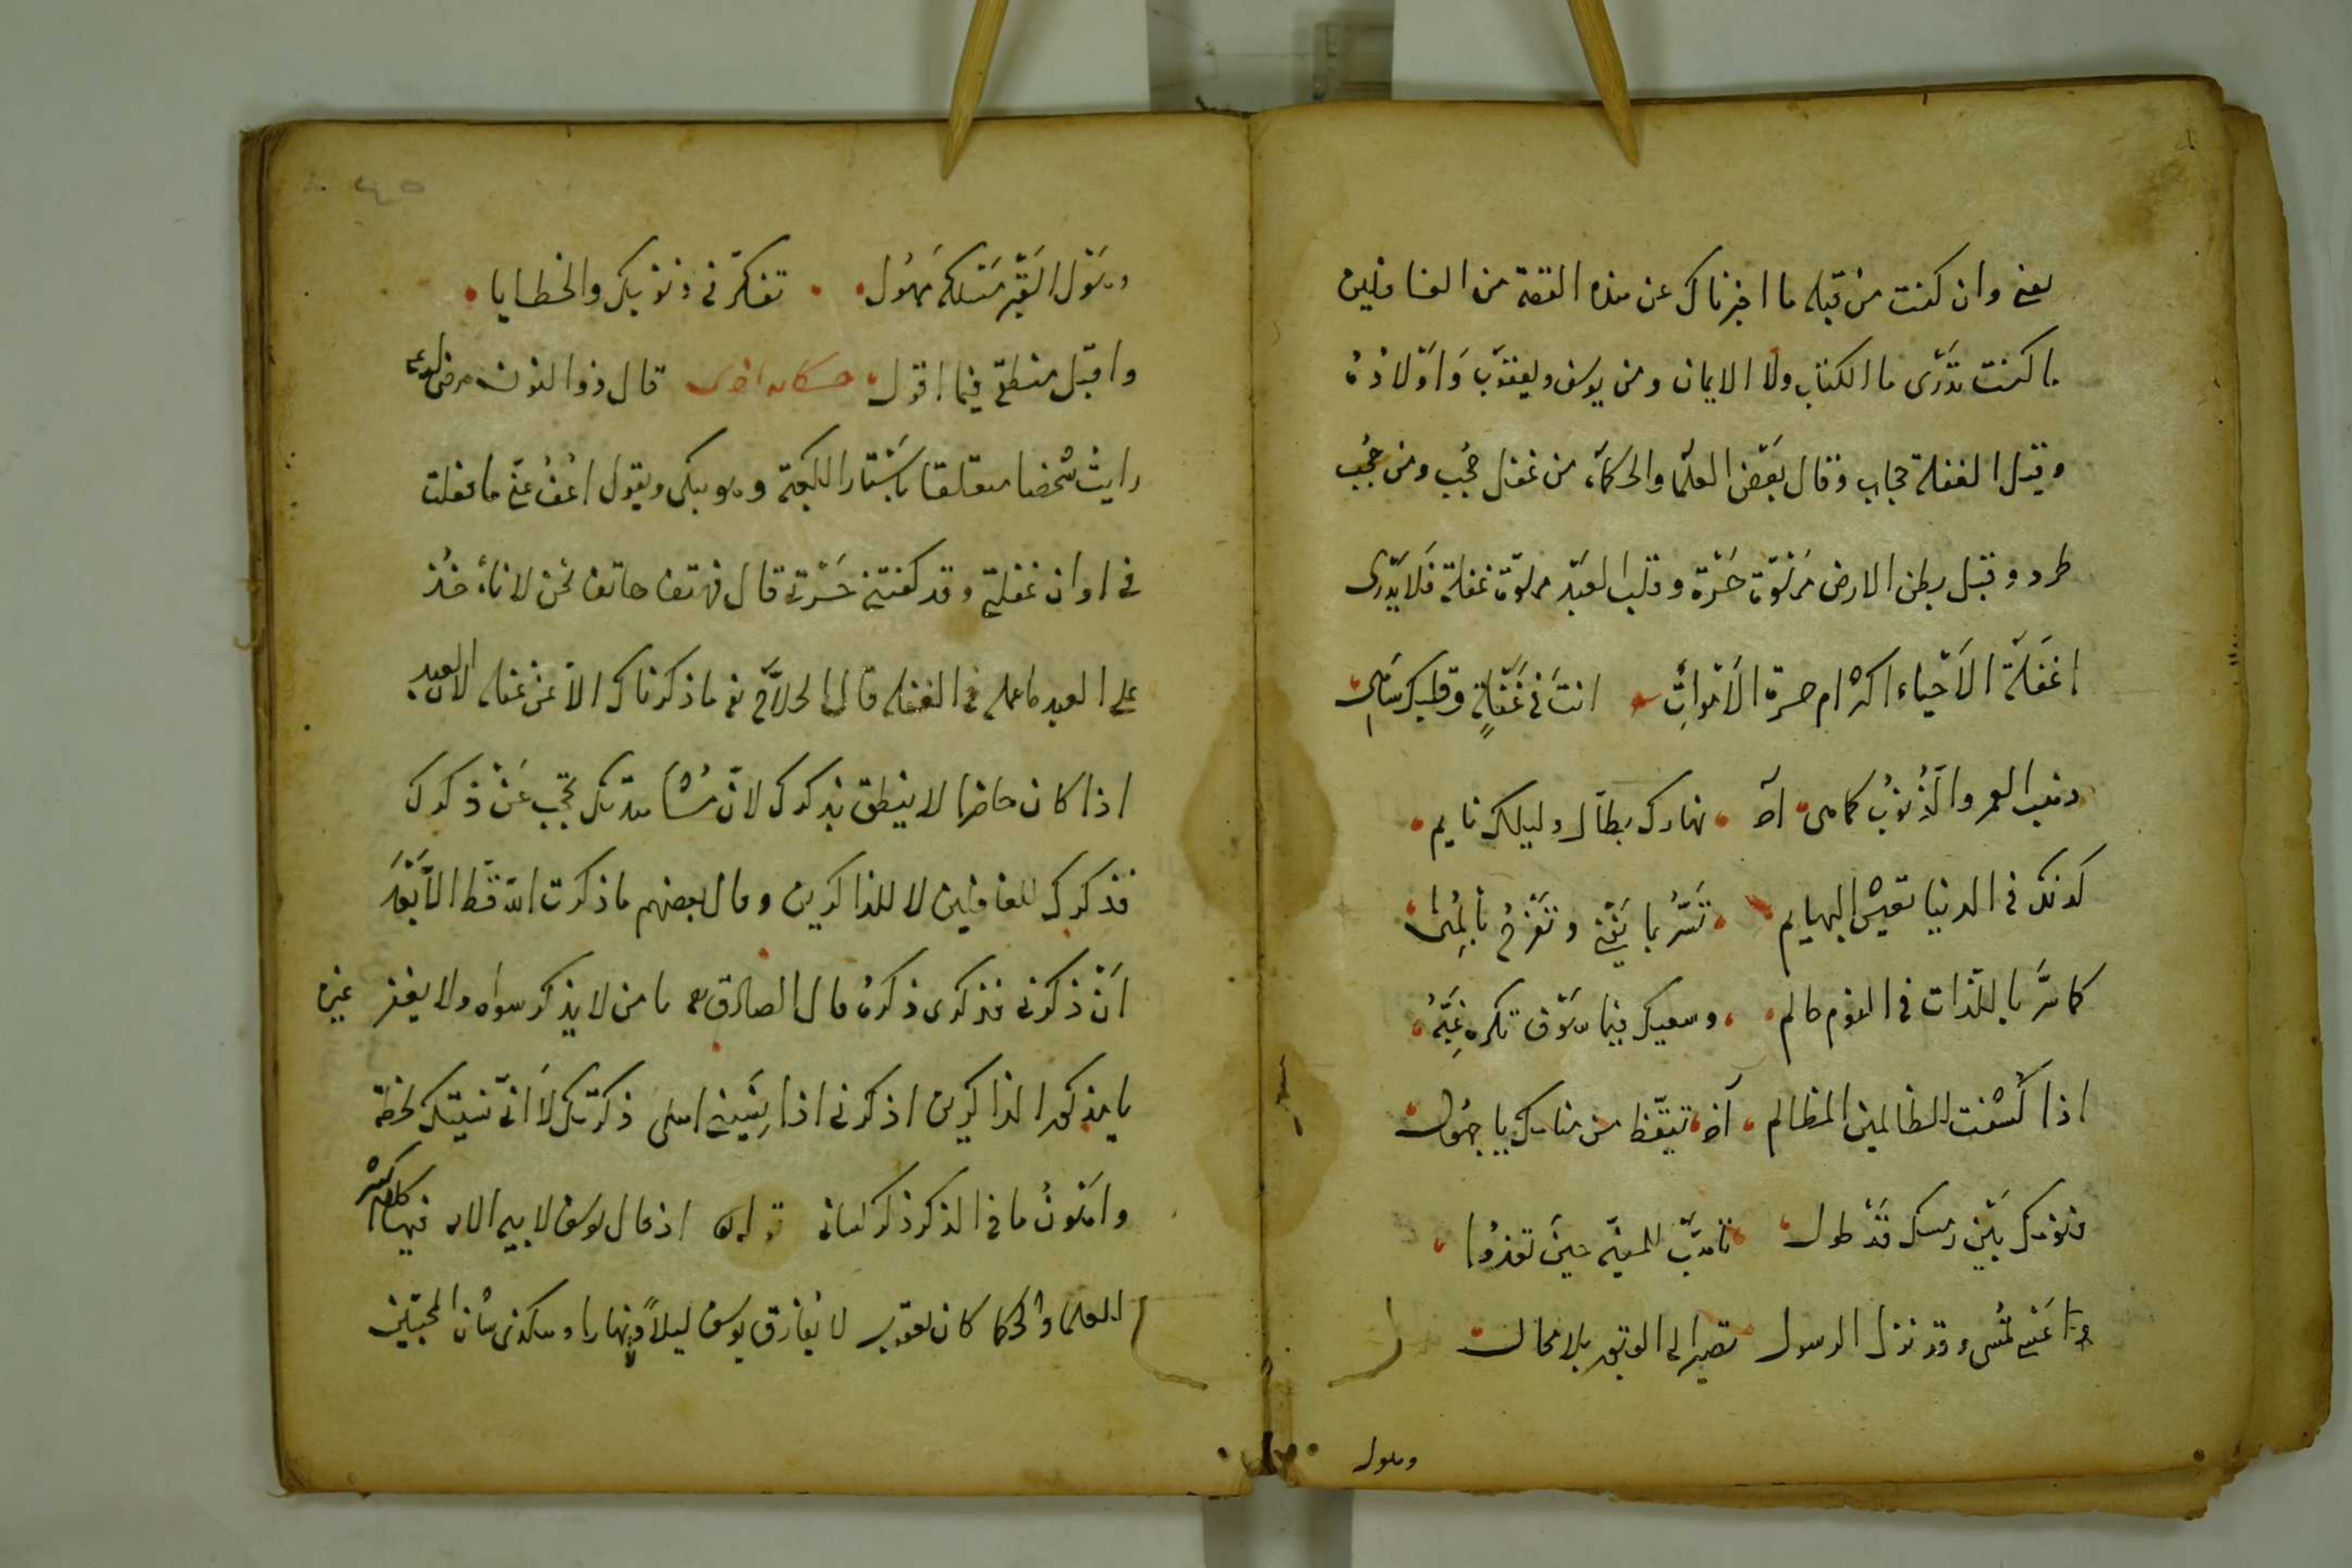 يعني وان كنت من قبله ما اخبرناك عن هذه القصة من الغافلين
ما كنت تدرى ما الكتاب ولا الايمان ومن يوسف ويعقوب واولاده
وقيل الغفلة حجاب وقال بعض العلما والحكماء من غفل حجب ومن حجب
طرد وقيل بطن الارض مملوة حسرة وقلب العبد مملوة غفلة فلا يدرى
اغفلة الاحياء اكثر ام حسرة الاموات انت في غفلة وقلبك ساهى
ذهب العمر والذنوب كما هى آخر نهارك بطال وليلك نايم
كذلك في الدنيا تعيش البهايم تسر بما يفنى وتفرح بالمنى
كما سر باللذات في النوم حالم وسعيك فيما سوف تكره غبه
اذا كشفت للظالمين المظالم آخر تيقظ من منامك يا جهول
فنومك بين رمسك قد طول تاهب للمنية حين تغدوا
تمسى وقد نزل الرسول تصير الى القبور بلا محالت
ويقول
ويقول القبر مسلكه مهول تفكر في ذنوبك والخطايا
واقبل منطقي فيما اقول حكايه اخرى قال ذوا النون رضي الله عنه
رايت شخصا متعلقا باستار الكعبة وهو يبكى ويقول اعف عني ما فعلت
في اوان غفلتي وقد كفتني حسرتي قال فهتف هاتف نحن لا ناخذ
على العبد ما عمله في الغفلة قال الحلاج في ما ذكرناك الا عن غفله لان العبد
اذا كان حاضرا لا ينطق بذكرك لان مشاهدتك تحجب عن ذكرك
فذكرك للغافلين لا للذاكرين وقال بعضهم ما ذكرت الله قط الا بعد
ان ذكرني فذكرى ذكره قال الصادق يا من لا يذكر سواه ولا يغفر غيره
يا مذكور الذاكرين اذكرني اذا نسينى اهلى ذكرتك لا اني نسيتك لحظة
واهون ما في الذكر ذكر لسانى قوله اذ قال يوسف لابيه الايه فيها كلام اكثر
العلما والحكما كان يعقوب لا يفارق يوسف ليلا ونهارا وهكذى شان المحبين